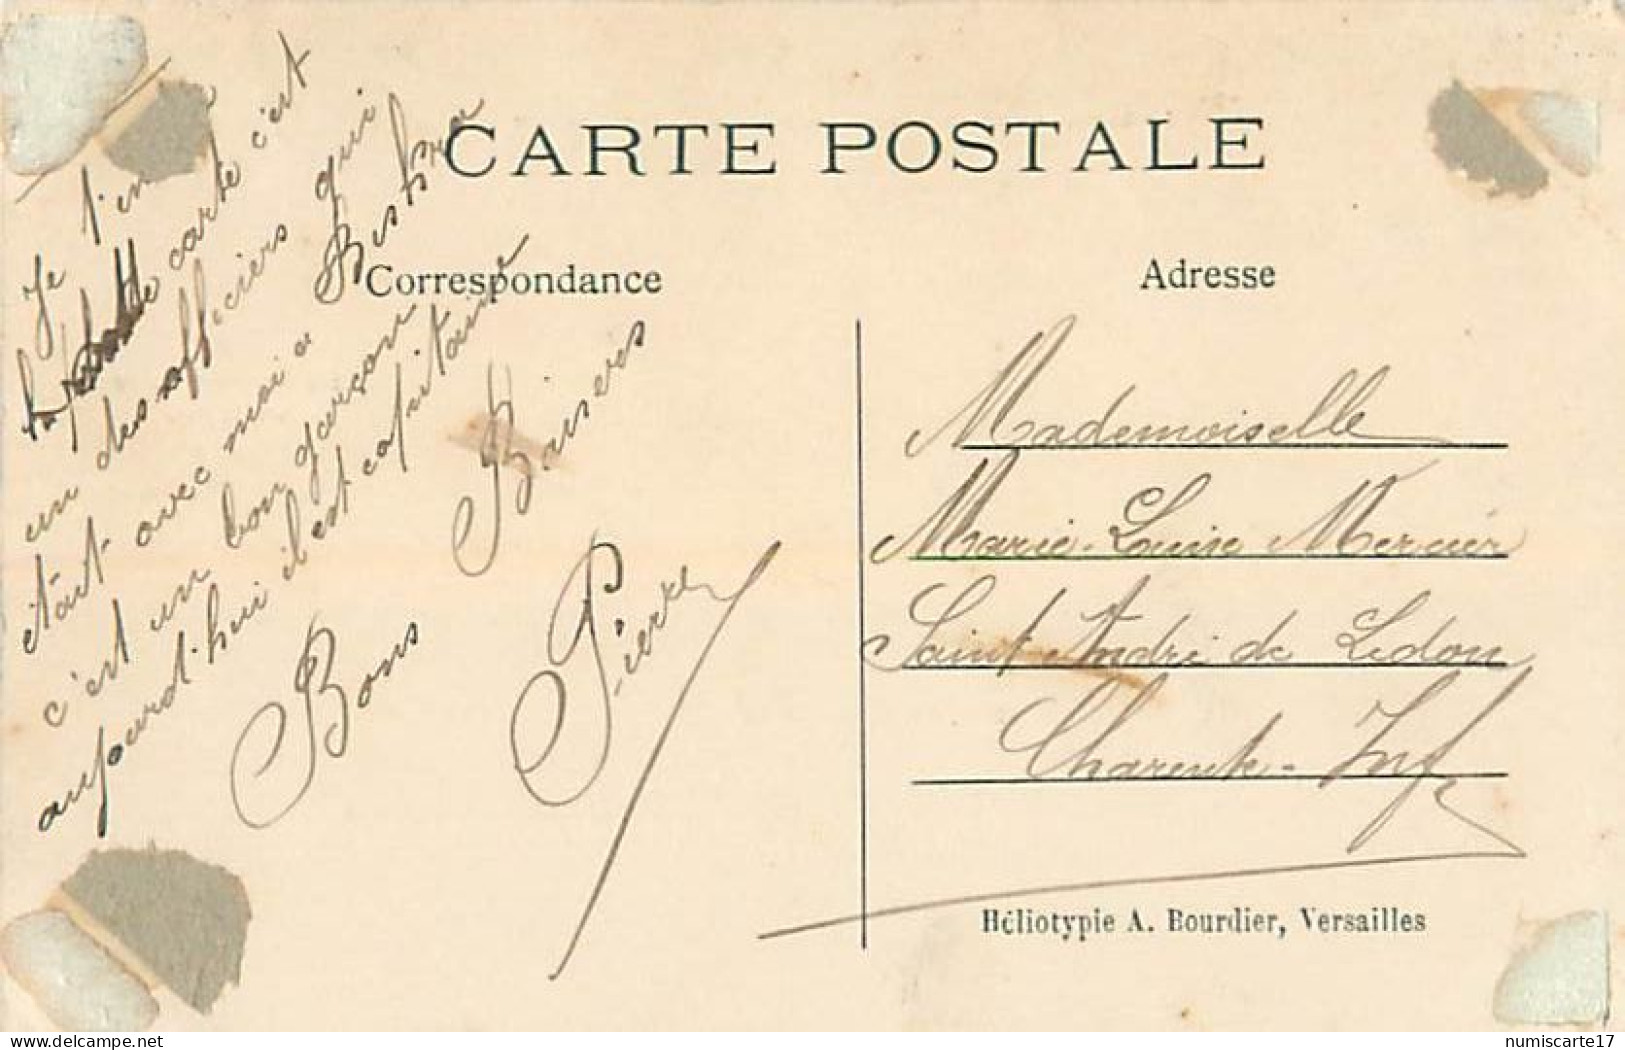 CARTE POSTALE
Correspondance
Je t'en
carte c'est
un des officiers qui
était avec moi a Biskra
c'est un bon garçon
aujourd'hui il est capitaine
Bons Baisers
Pierre
Adresse
Mademoiselle
Marie-Louise Mercier
Saint André de Lidon
Charente-Inf
Héliotypie A. Bourdier, Versailles
www.delcampe.net
numiscarte17